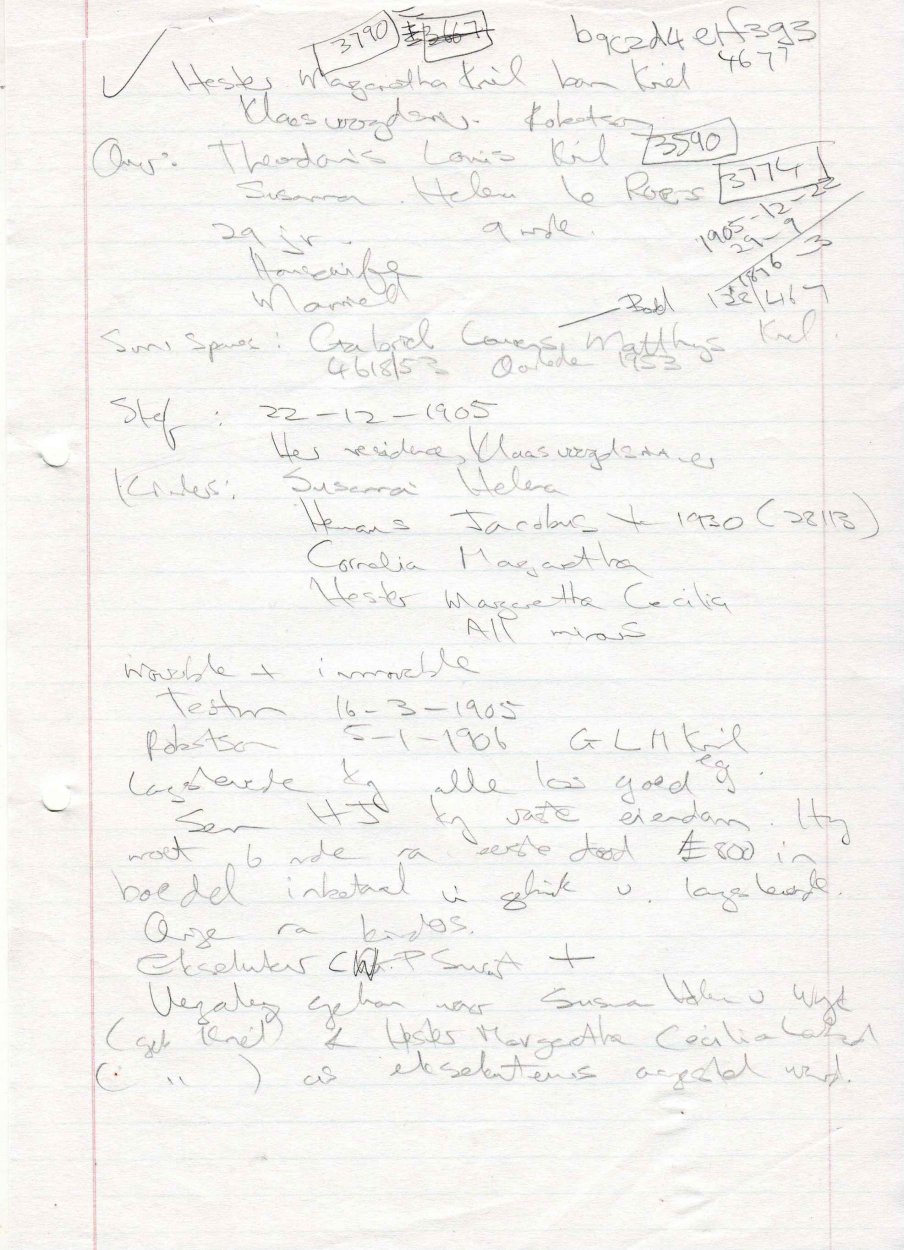 3790 3667 b9c2d4e1f3g3
4677
Hester Margaretha Kriel born Kriel
Klaasvoogdsriv. Robertson
Ours: Theodoris Louis Kriel 3590
Susanna Helena 3774
29 jr. 9 mde. 1905-12-22
29-9
Housewife 3
Married 1876
Surv Spouse: Gabriel Matthys Kriel 467
4618/53 Oorlede 1953
Sterf: 22-12-1905
Her residence, Klaasvoogdsrivier
Kinders: Susanna Helena
Jacobus + 1930 (28113)
Cornelia Margaretha
Hester Margaretha Cecilia
All minors
movable + immovable
Testm 16-3-1905
Robertson 5-1-1906 G L M Kriel
Langslewende kry alle los goed
Seun HJ kry vaste eiendom. Hy
moet 6 mde na eerste dood £800 in
boedel inbetaal v. langslewende.
na kinders.
Eksekuteur +
Susanna Helena v Wyk
(geb Kriel) & Hester Margaretha Cecilia
( " ) as eksekuteurs aangestel word.